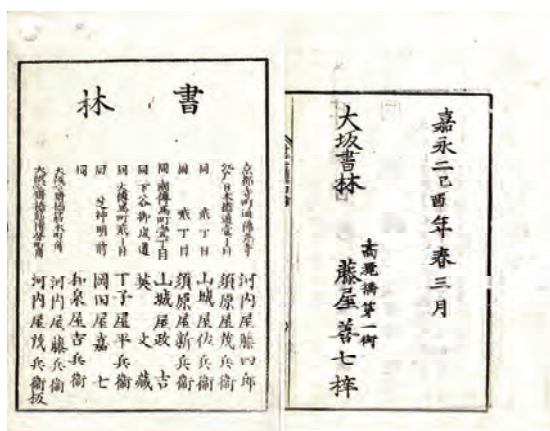 嘉永二己酉年春三月
大坂書林
高麗橋第一街
藤屋善七梓
書林
京都寺町通佛光寺 河内屋藤四郎
江戸日本橋通壹丁目 須原屋茂兵衛
同 貳丁目 山城屋佐兵衛
同 貳丁目 須原屋新兵衛
同 南傳馬町壹丁目 山城屋政吉
同 下谷御成道 英文藏
同 大傳馬町貳丁目 丁子屋平兵衛
同 芝神明前 岡田屋嘉七
同 和泉屋吉兵衛
大坂心齋橋 河内屋藤兵衛
大坂心齋橋 河内屋茂兵衛板